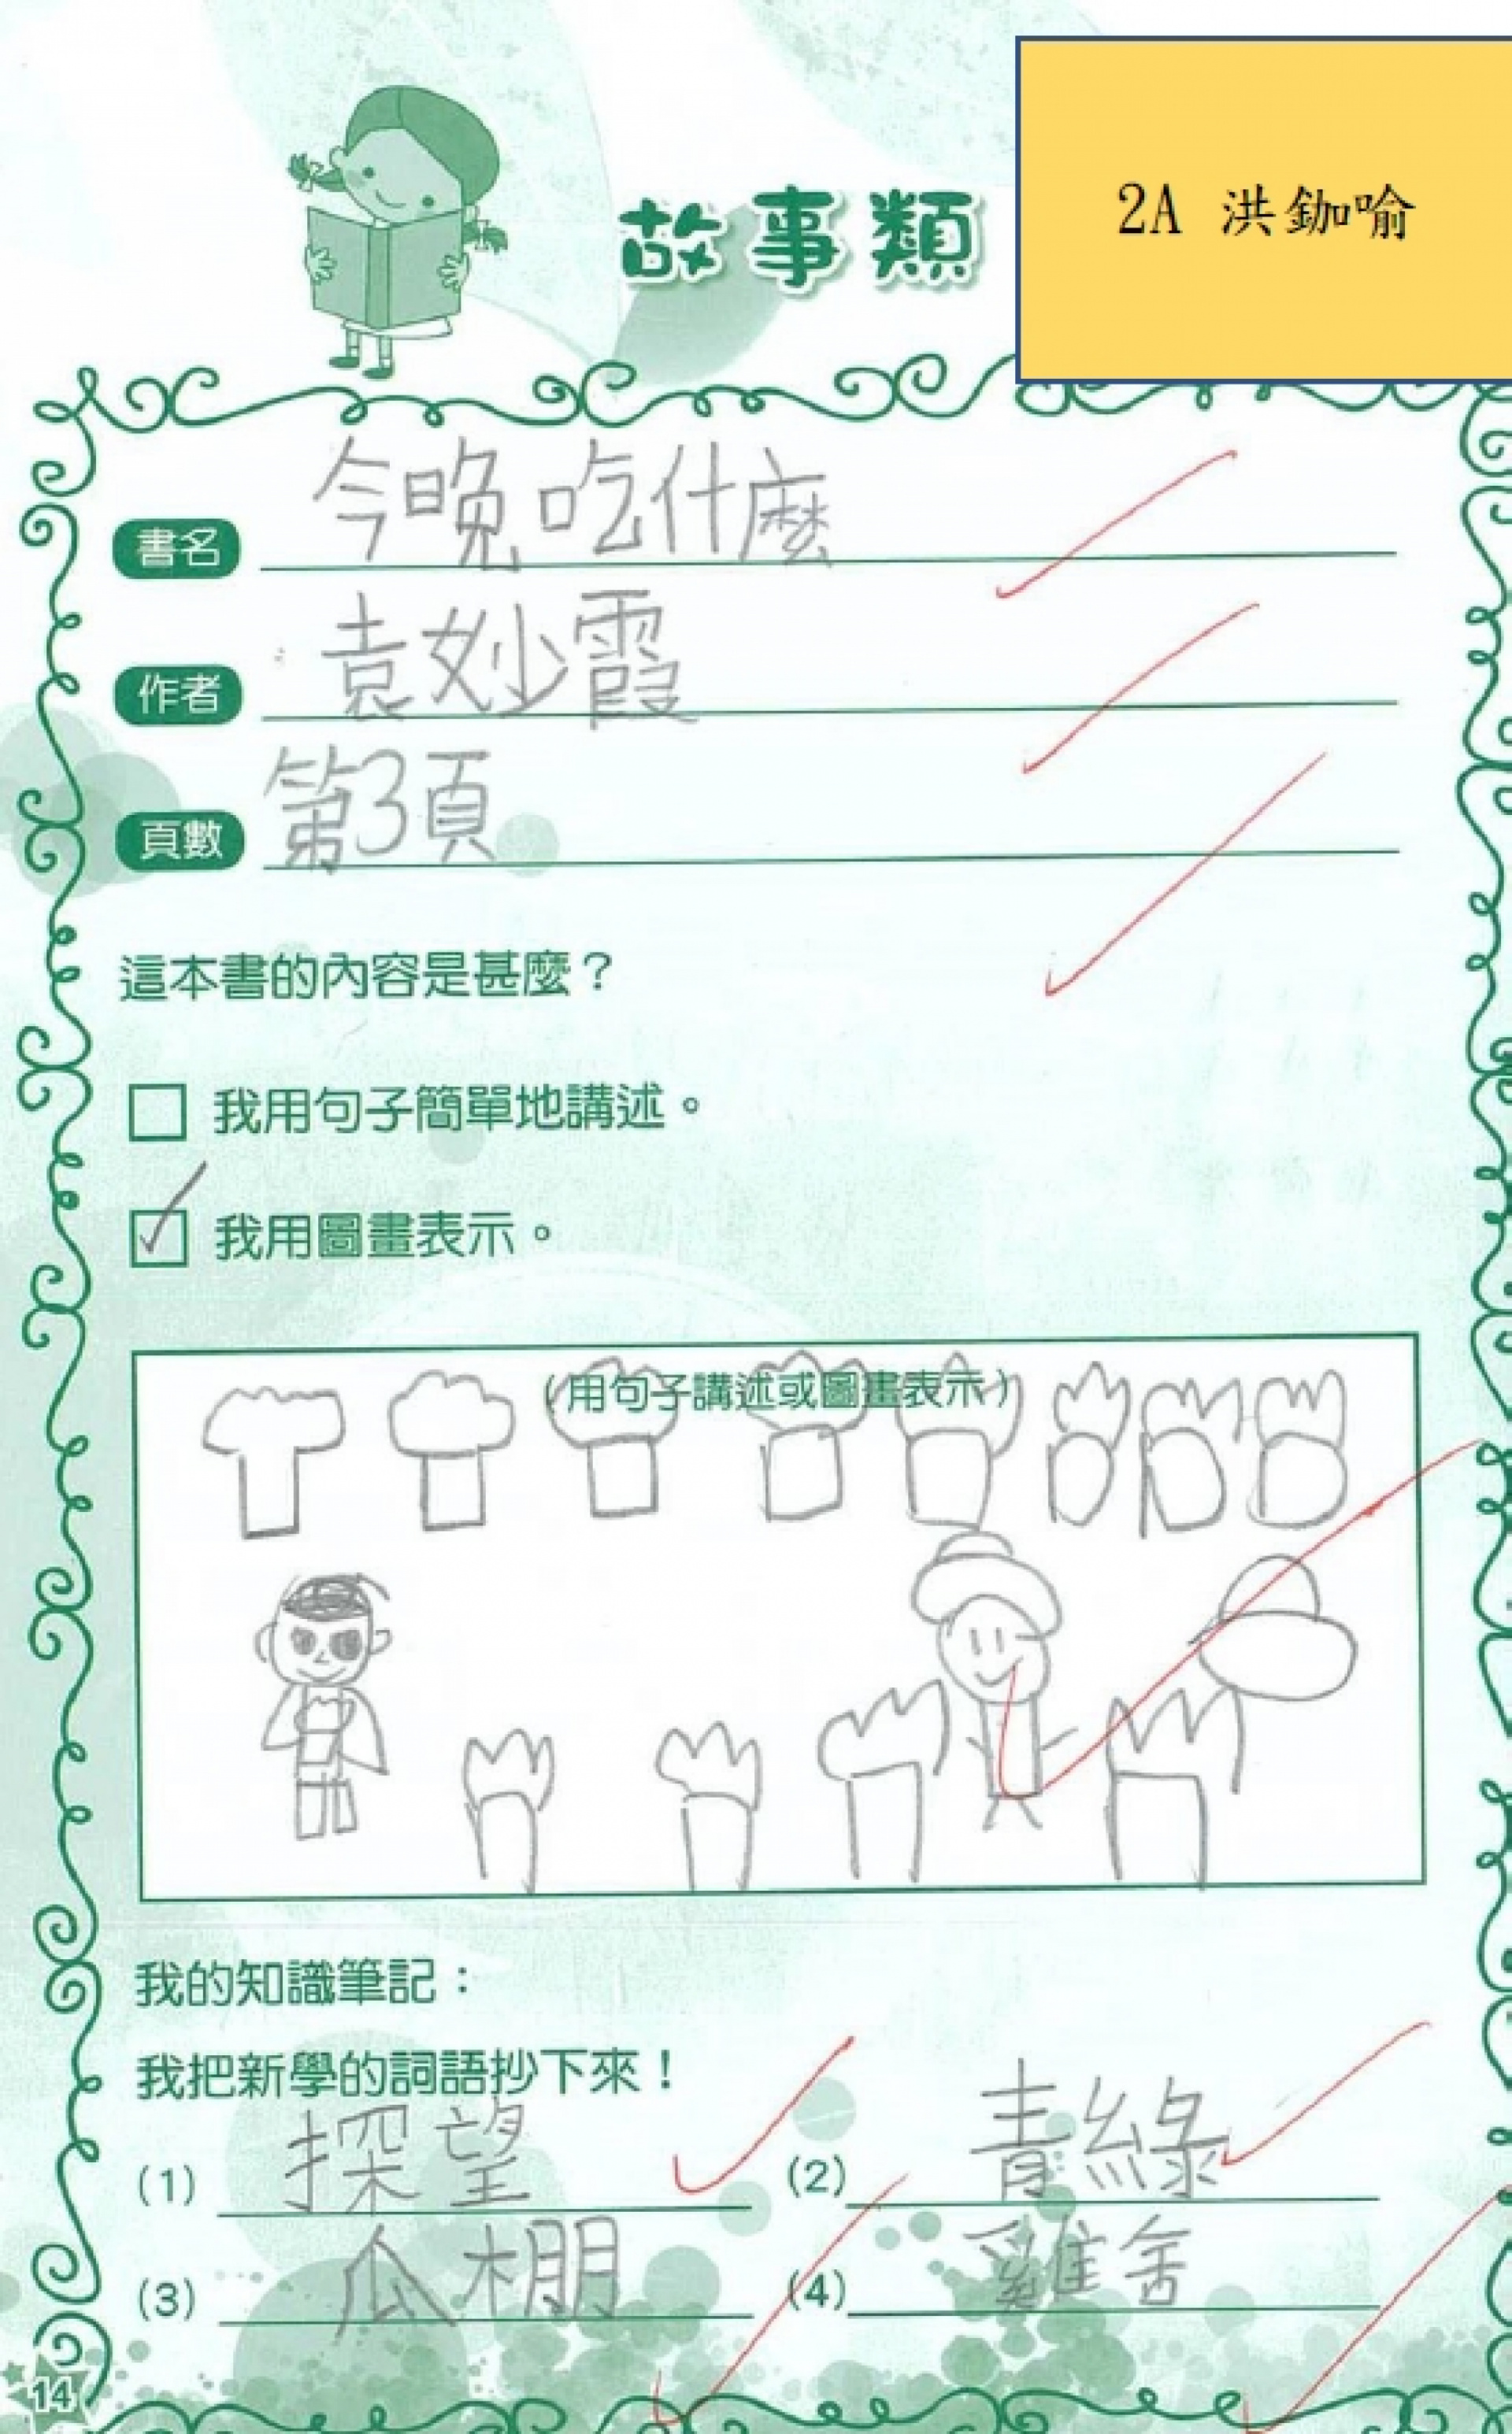 2A 洪鉫喻
故事類
書名 今晚吃什麼
作者 袁妙霞
頁數 第3頁
這本書的內容是甚麼？
我用句子簡單地講述。
我用圖畫表示。
（用句子講述或圖畫表示）
我的知識筆記：
我把新學的詞語抄下來！
(1) 探望 (2) 青綠
(3) 瓜棚 (4) 雞舍
14